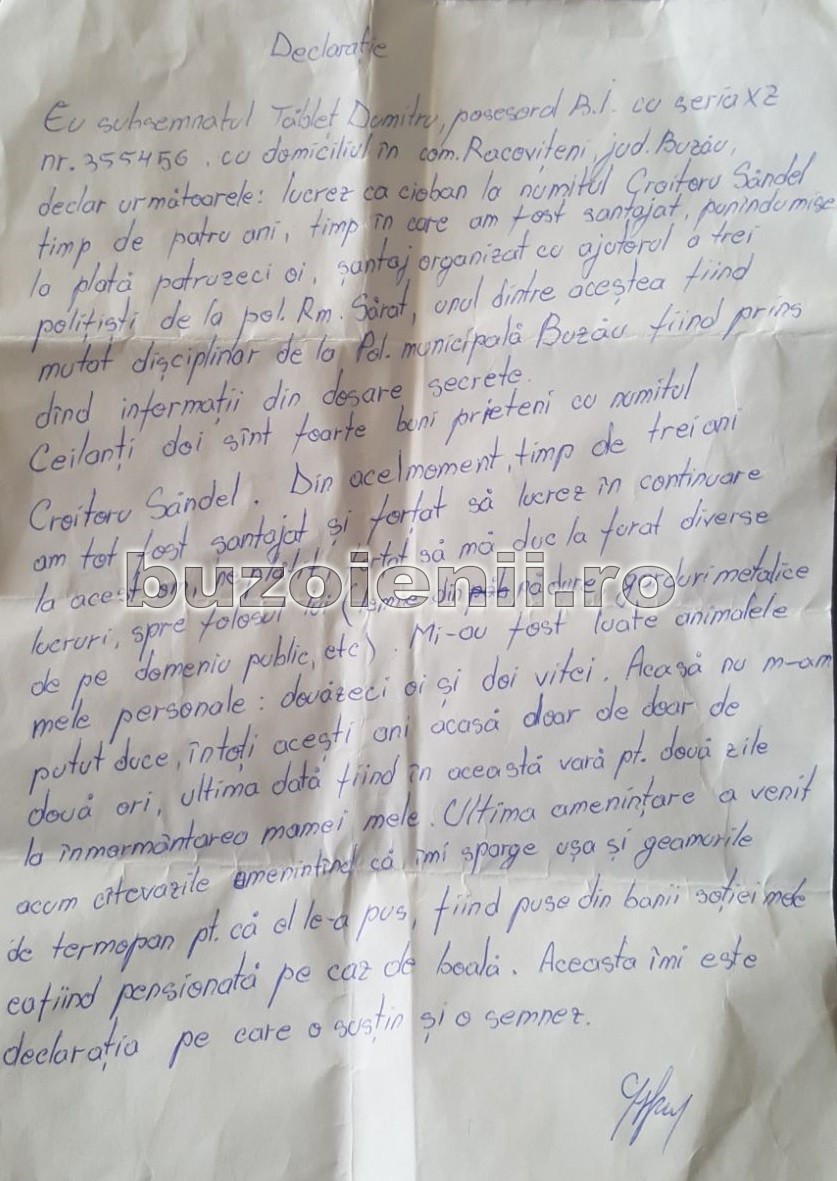 Declarație
Eu subsemnatul Tăbleț Dumitru, posesorul B.I. cu seria XZ
nr. 355456. cu domiciliul în com. Racovițeni, jud. Buzău,
declar următoarele: lucrez ca cioban la numitul Croitoru Săndel
timp de patru ani, timp în care am fost santajat, punîndumise
la plată patruzeci oi, șantaj organizat cu ajutorul a trei
polițiști de la pol. Rm. Sărat, unul dintre aceștea fiind
mutat disciplinar de la Pol. municipală Buzău fiind prins
dînd informații din dosare secrete.
Ceilanți doi sînt foarte buni prieteni cu numitul
Croitoru Săndel. Din acel moment, timp de trei ani
am tot fost santajat și forțat să lucrez în continuare
la acest om, să mă duc la furat diverse
lucruri, spre folosul lui ( din pădure, garduri metalice
de pe domeniu public, etc). Mi-au fost luate animalele
mele personale: douăzeci oi și doi vitei. Acasă nu m-am
putut duce, în toți acești ani acasă doar de doar de
două ori, ultima dată fiind în această vară pt. două zile
la înmormântarea mamei mele. Ultima amenințare a venit
acum cîtevazile amenintînd că, îmi sparge ușa și geamurile
de termopan pt. că el le-a pus, fiind puse din banii soției mele
eafiind pensionată pe caz de boală. Aceasta îmi este
declarația pe care o susțin și o semnez.
buzoienii.ro